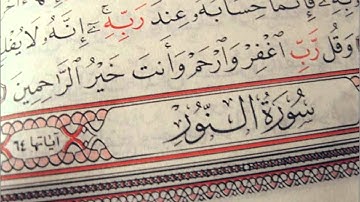 بِهِۦ فَإِنَّمَا حِسَابُهُۥ عِندَ رَبِّهِۦٓ ۚ إِنَّهُۥ لَا يُفْلِ
وَقُل رَّبِّ اغْفِرْ وَارْحَمْ وَأَنتَ خَيْرُ الرَّاحِمِينَ
سُورَةُ النُّورِ
آيَاتُهَا ٦٤